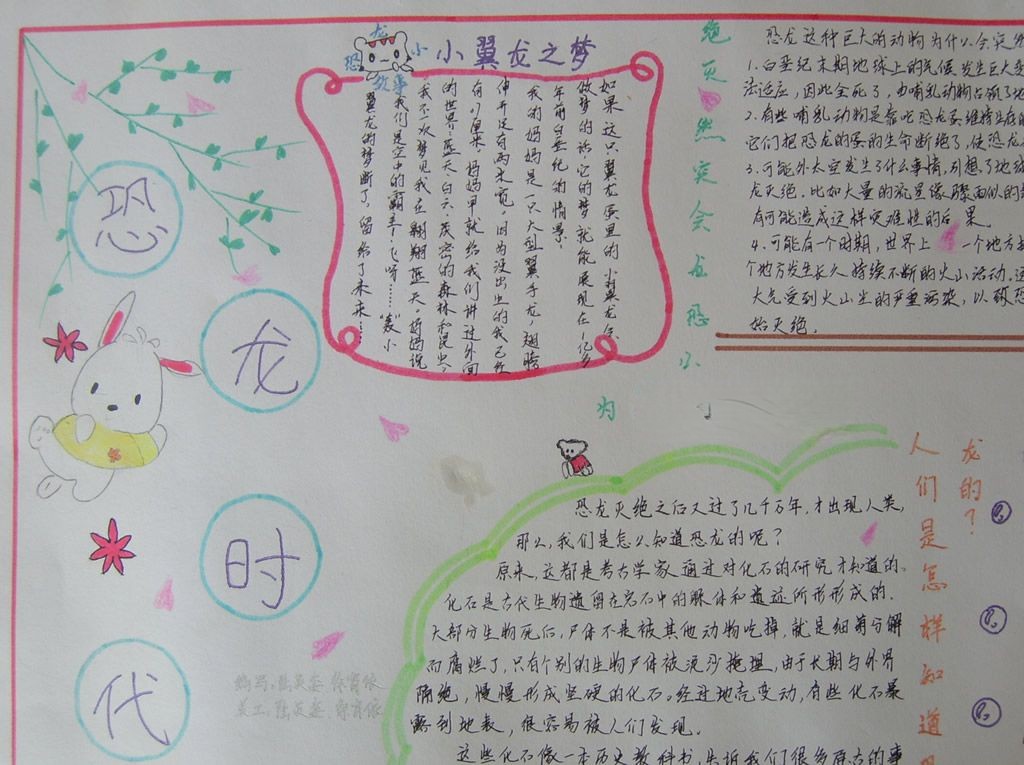 恐
龙
时
代
恐龙小故事
小翼龙之梦
如果这只翼龙蛋里的小翼龙会
做梦的话,它的梦就能展现在一亿多
年前白垩纪的情景。
我的妈妈是一只大型翼手龙,翅膀
伸开足有两米宽。因为没出生的我已经
有八厘米,妈妈早就给我们讲过外面
的世界:蓝天、白云、茂密的森林和昆虫。
我不次梦见我在翱翔蓝天。妈妈说
我们是空中的霸主。飞呀……“轰”小
翼龙的梦断了,留给了未来……
小恐龙会突然灭绝
为
恐龙这种巨大的动物为什么会突然
1.白垩纪末期地球上的气候发生巨大变
法适应,因此全死了,由哺乳动物占领了地
2.有些哺乳动物是靠吃恐龙蛋维持生存的
它们把恐龙的蛋的生命断绝了,使恐龙
3.可能外太空发生了什么事情,引想了地球
龙灭绝.比如大量的流星像骤雨似的
有可能造成这样突难性的后果。
4.可能有一个时期,世界上 一个地方
个地方发生长久持续不断的火山活动.这
大气受到火山尘的严重污染,以致恐
始灭绝.
人们是怎样知道恐
龙的?
恐龙灭绝之后又过了几千万年,才出现人类,
那么,我们是怎么知道恐龙的呢?
原来,这都是考古学家通过对化石的研究才知道的。
化石是古代生物遗留在岩石中的躯体和遗迹所形形成的.
大部分生物死后,尸体不是被其他动物吃掉,就是细菌分解
而腐烂了,只有个别的生物尸体被泥沙掩埋,由于长期与外界
隔绝,慢慢形成坚硬的化石。经过地壳变动,有些化石暴
露到地表,很容易被人们发现.
这些化石像一本历史教科书,告诉我们很多远古的事